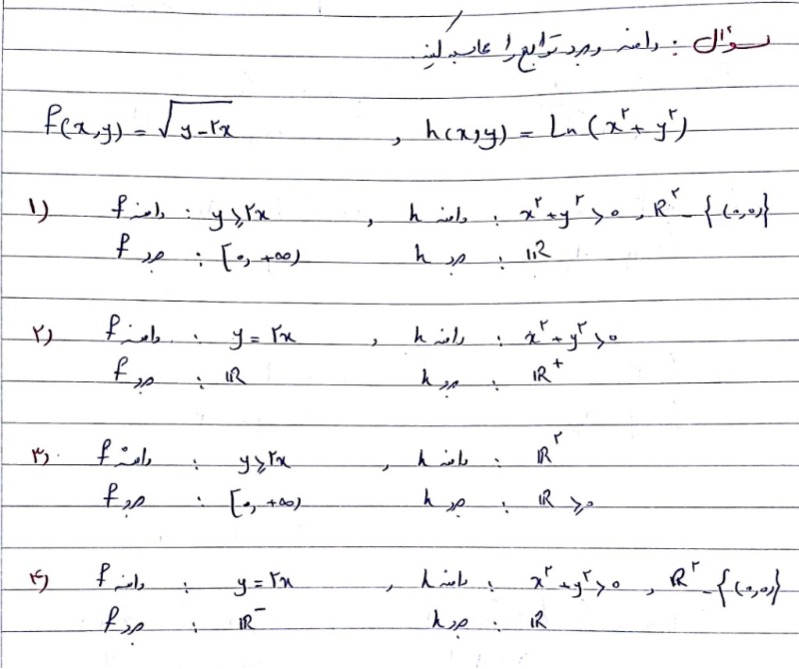 سؤال : دامنه و برد توابع را محاسبه کنید.
f(x,y) = √(y-۲x) , h(x,y) = Ln (x^۲ + y^۲)
۱) دامنه f : y ⩾ ۲x , دامنه h : x^۲ + y^۲ > ۰ , R^۲ - {(۰,۰)}
برد f : [۰, +∞) برد h : ℝ
۲) دامنه f : y = ۲x , دامنه h : x^۲ + y^۲ > ۰
برد f : ℝ برد h : ℝ^+
۳) دامنه f : y ⩾ ۲x , دامنه h : ℝ^۲
برد f : [۰, +∞) برد h : ℝ ⩾ ۰
۴) دامنه f : y = ۲x , دامنه h : x^۲ + y^۲ > ۰ , R^۲ - {(۰,۰)}
برد f : ℝ^- برد h : ℝ